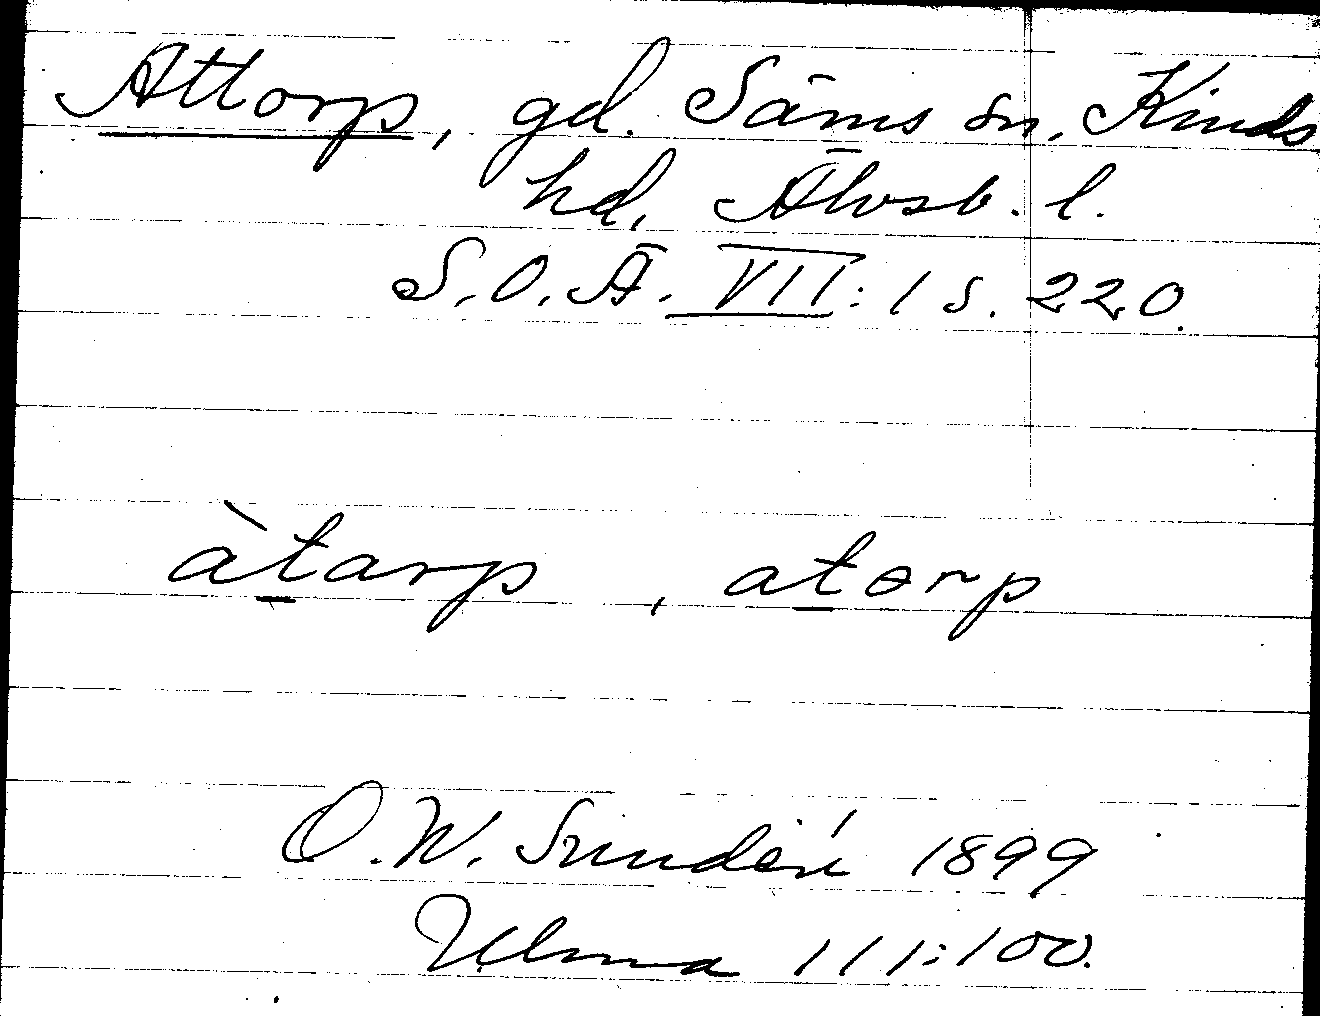 Attorp, gd. Säms sn. Kinds
hd, Älvsb. l.
S.O.Ä. VII: 1 s. 220.
àt̲arp, at̲ɵrp
O. W. Sundén 1899
Ulma 111:100.